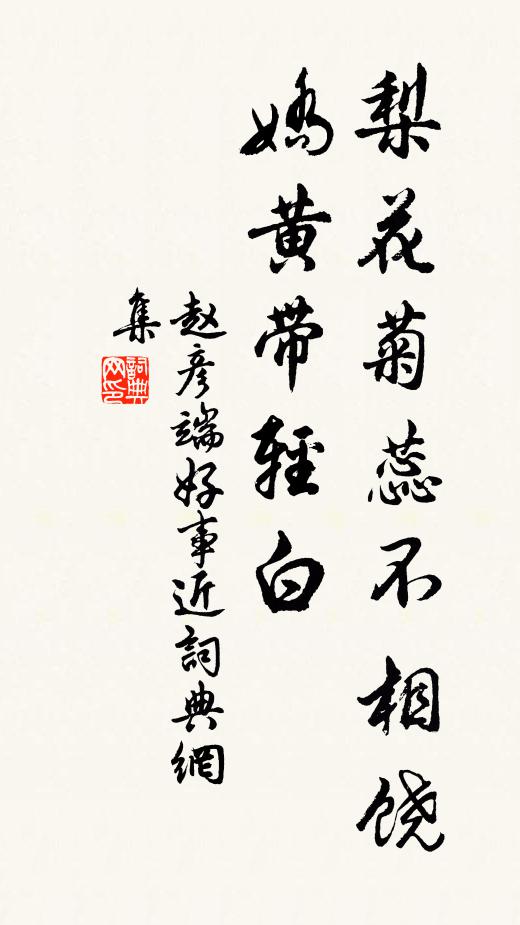 梨花菊蕊不相饶
娇黄带轻白
赵彦端好事近詞典網
集
詞典
网印